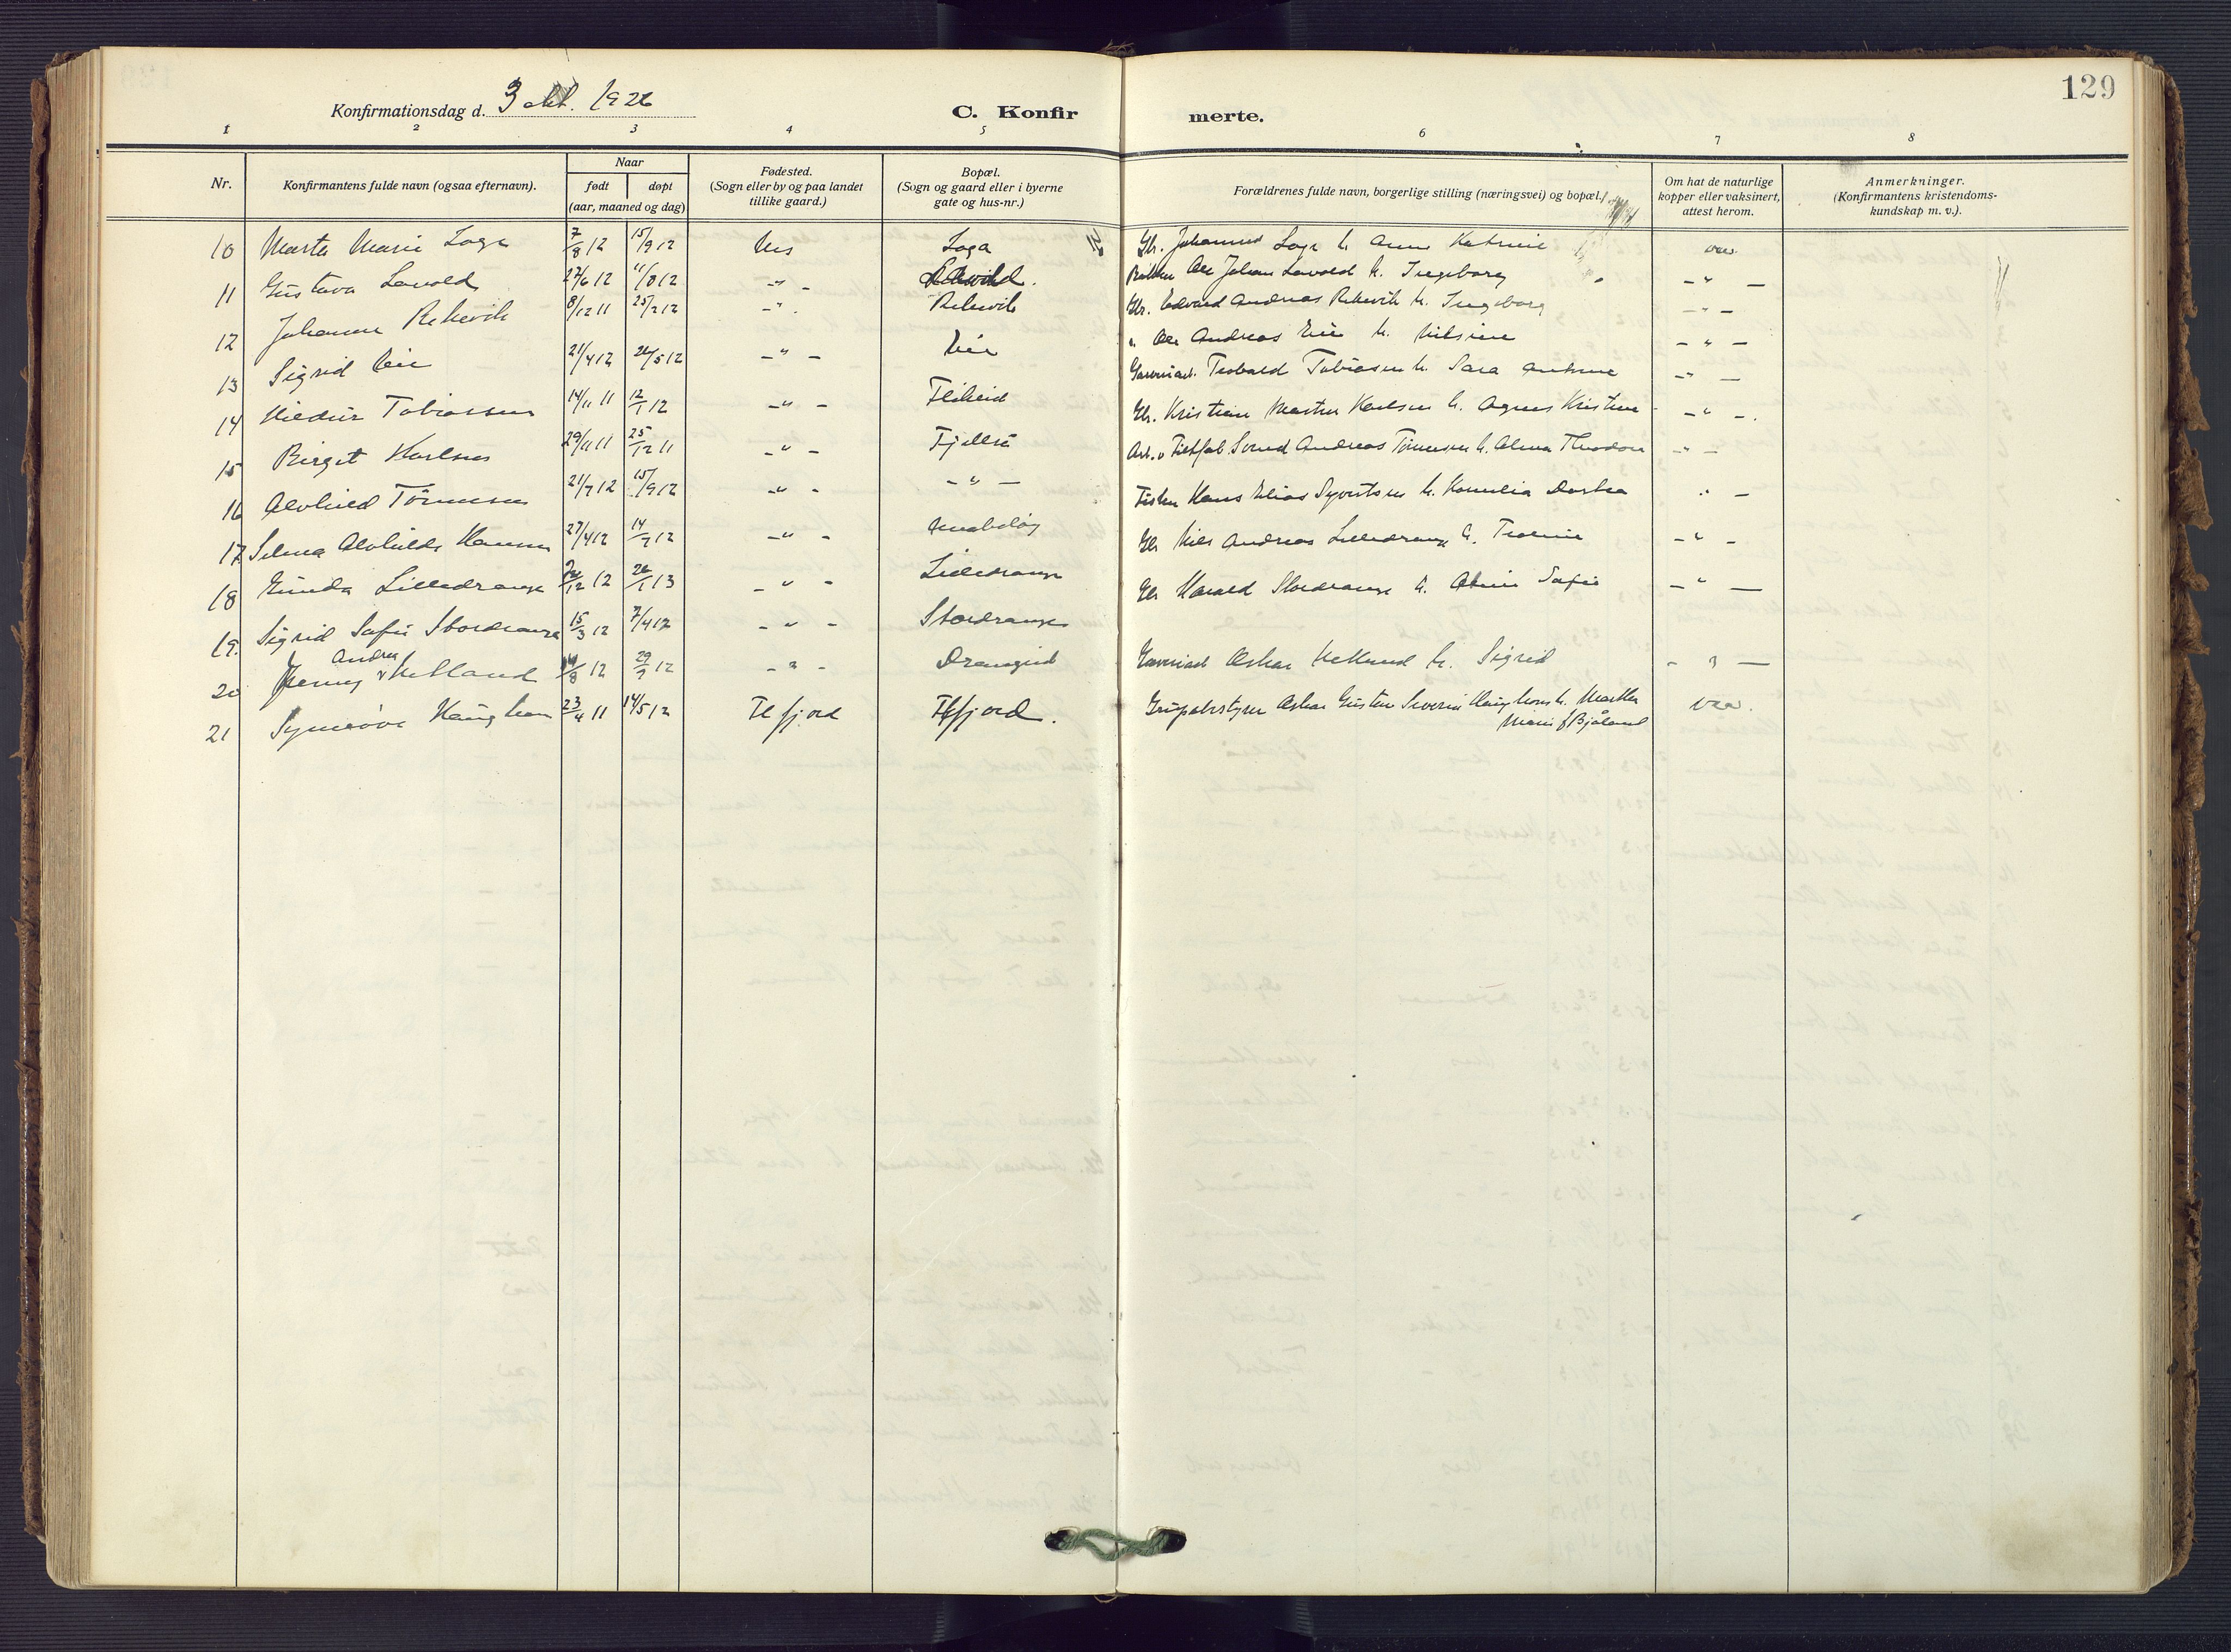 129
Konfirmationsdag d. 3 okt. 1926
C. Konfir merte.
1 2 3 4 5 6 7 8
Nr.
Konfirmantens fulde navn (ogsaa efternavn).
Naar
født døpt
(aar, maaned og dag)
Fødested.
(Sogn eller by og paa landet
tillike gaard.)
Bopæl.
(Sogn og gaard eller i byerne
gate og hus-nr.)
Forældrenes fulde navn, borgerlige stilling (næringsvei) og bopæl.
Om hat de naturlige
kopper eller vaksinert,
attest herom.
Anmerkninger.
(Konfirmantens kristendoms-
kundskap m. v.).
10 Marta Marie Loga 7/8 12 15/9 12 Nes Loga Gbr. Johannes Loga h. Anna Katrine vac
11 Gustava Lavold 27/6 12 11/8 12 -"- Ole Johan Lavold h. Ingeborg -"-
12 Johanne Rekevik 8/12 11 25/2 12 -"- Rekevik Gbr. Edvard Andreas Rekevik h. Ingeborg -"-
13 Sigrid Eie 21/4 12 26/5 12 -"- Eie " Ole Andreas Eie h. Nilsine -"-
14 Hildur Tobiassen 14/11 11 12/1 12 -"- Flikeid Garveriarb. Teobald Tobiasen h. Sara -"-
15 Birget Karlsen 29/11 11 25/12 11 -"- Fjellså Gbr. Kristian Martin Karlsen h. Agnes Kristine -"-
16 Alvhild Tønnesen 21/7 12 15/9 12 -"- -"- Arb. v Andreas Tønnesen h. Alma Theodora -"-
17 Selma Alvhilde Hansen 27/4 12 14/7 12 -"- Fisker Hans Elias Syvertsen h. Kornelia Dortea "-
18 Gunda Lilledrange 12 12 26/1 13 -"- Lilledrange Gbr Nils Andreas Lilledrange h. -"-
19. Sigrid Sofie Stordrange 15/3 12 7/4 12 -"- Stordrange Gbr Harald Stordrange h. Sofie -"-
Andrea
20 Jenny v Netland 14/8 12 29/9 12 -"- Drangeid Garveriarb Oskar Netland h. Sigrid -"-
21 Synnøve Haughom 23/4 11 14/5 12 Flfjord Flfjord. Oskar Gustav Severin Haughom h. Martha
Marie f Bjåland vac.